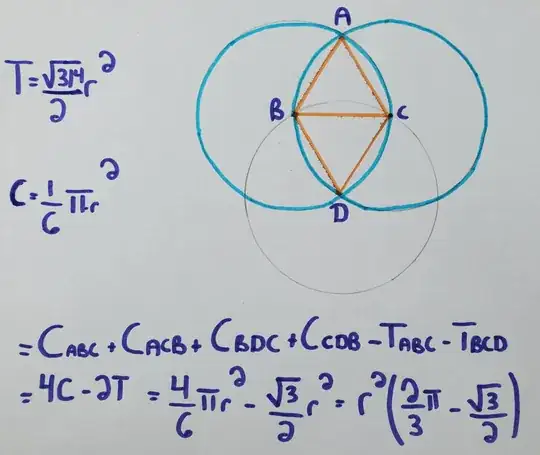 A
T = \frac{\sqrt{3/4}}{2} r²
B C
C = \frac{1}{6} πr²
D
= C_{ABC} + C_{ACB} + C_{BDC} + C_{CDB} - T_{ABC} - T_{BCD}
= 4C - 2T = \frac{4}{6} πr² - \frac{\sqrt{3}}{2} r² = r² (\frac{2}{3} π - \frac{\sqrt{3}}{2})